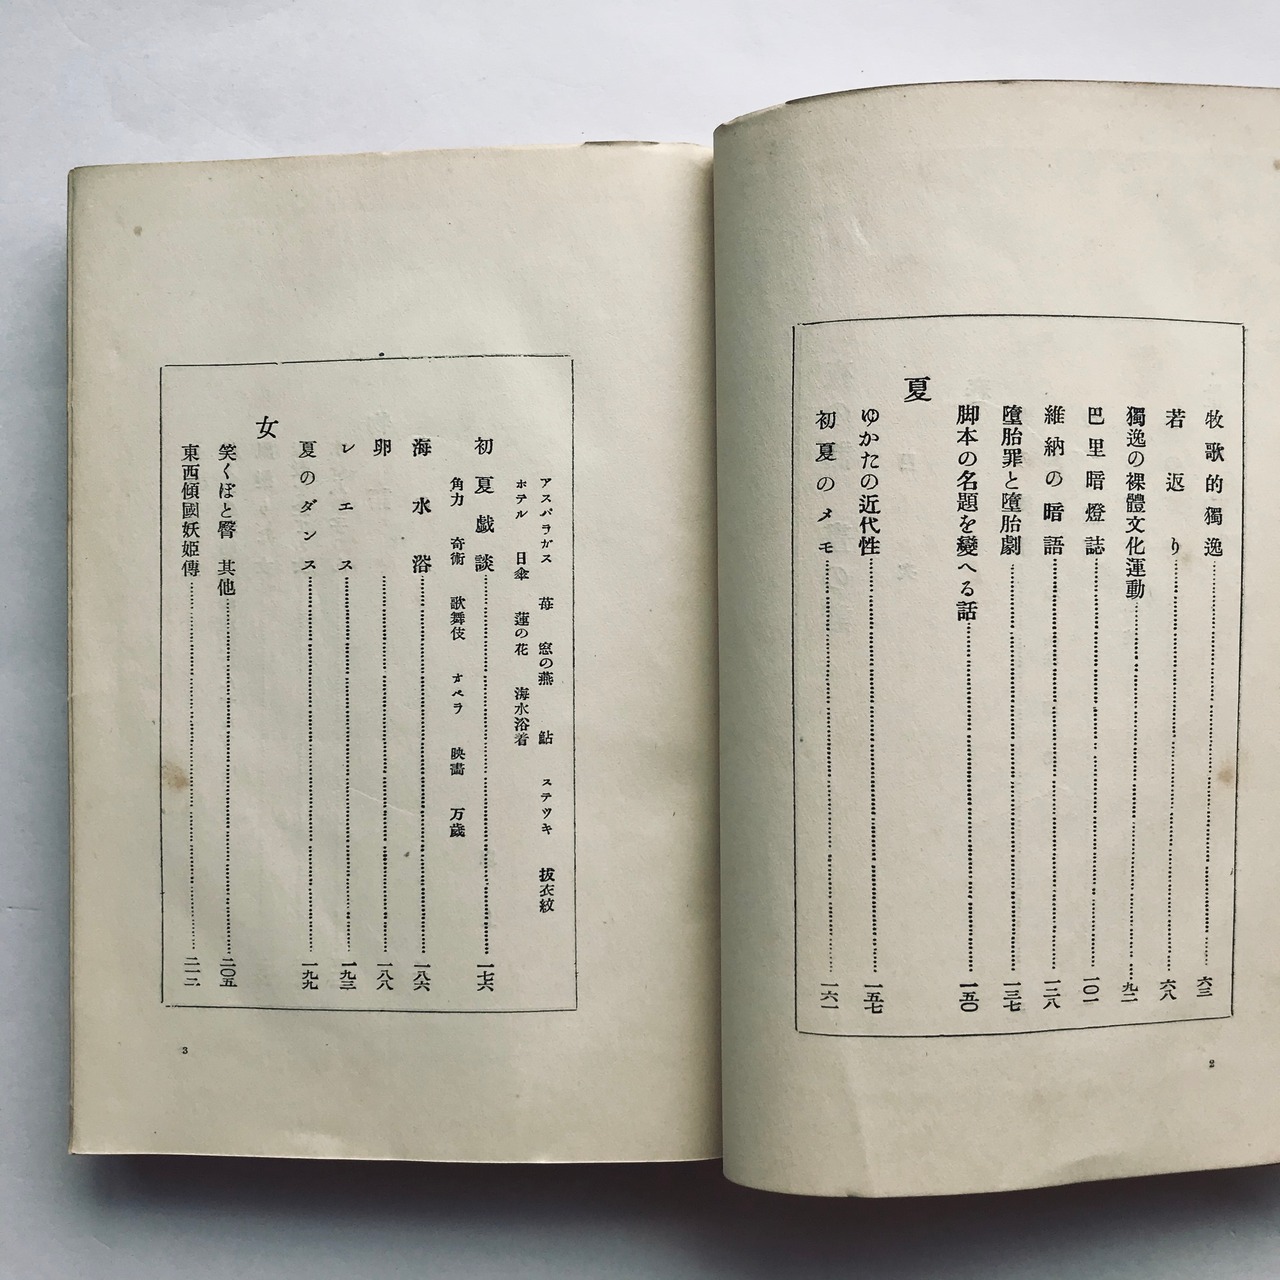 牧歌的獨逸……六三
若返り……六八
獨逸の裸體文化運動……九二
巴里暗燈誌……一〇一
維納の暗語……一二八
墮胎罪と墮胎劇……一三七
脚本の名題を變へる話……一五〇
夏
ゆかたの近代性……一五七
初夏のメモ……一六一
2
アスパラガス 苺 窓の燕 鮎 ステツキ 拔衣紋
ホテル 日傘 蓮の花 海水浴着
初夏戯談……一七六
角力 奇術 歌舞伎 オペラ 映畵 万歲
海水浴……一八六
卵……一八八
レエス……一九三
夏のダンス……一九九
女
笑くぼと臀 其他……二〇五
東西傾國妖姫傳……二一二
3